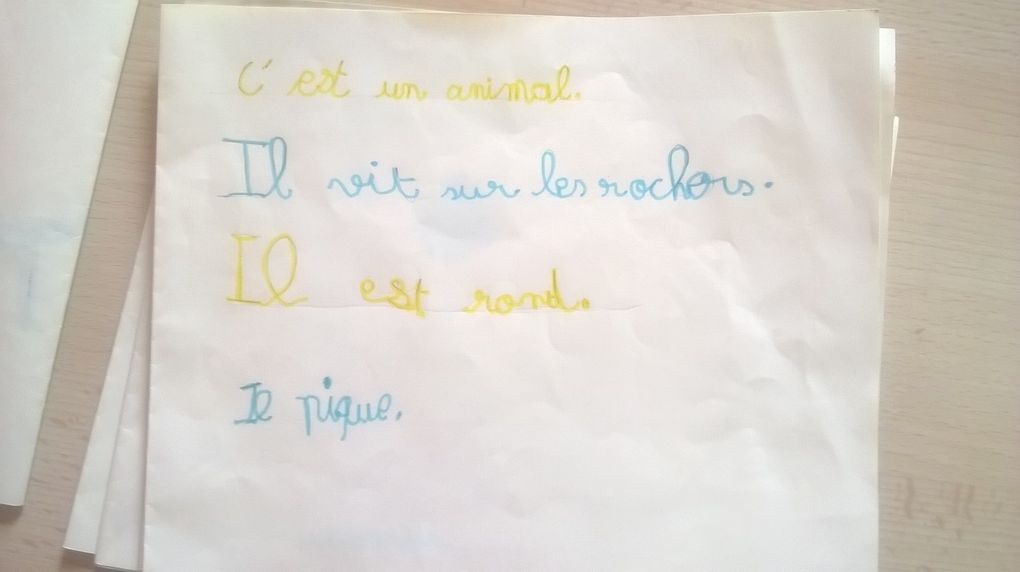 C'est un animal.
Il vit sur les rochers.
Il est rond.
Il pique.